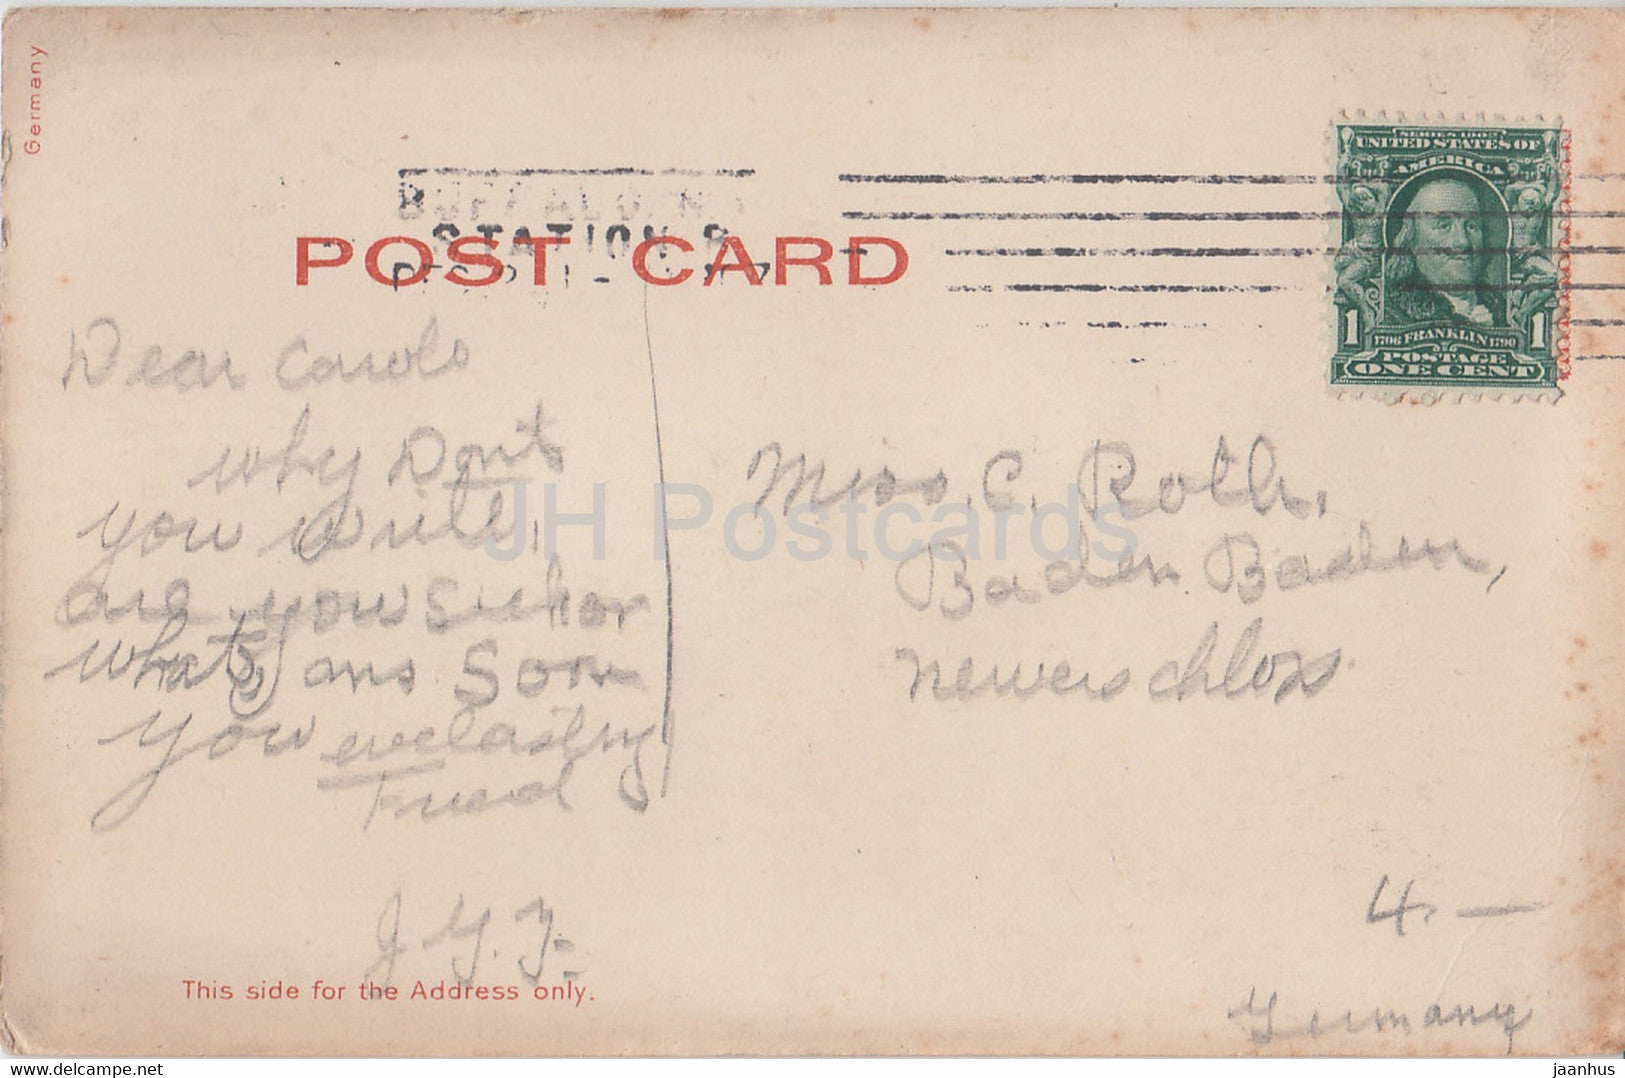 Germany
BUFFALO, N.Y.
STATION
POST CARD
SERIES 1902
UNITED STATES OF
AMERICA
1 1706 FRANKLIN 1790 1
POSTAGE
ONE CENT
Dear Carols
why Dont
you write,
are you sick or
whats, ans Soon
you everlasting
Friend
J. Y. Y.
Miss. C. Roth,
Baden Baden,
Neuerschloss.
4. —
Germany
This side for the Address only.
JH Postcards
delcampe.net
jaanhus